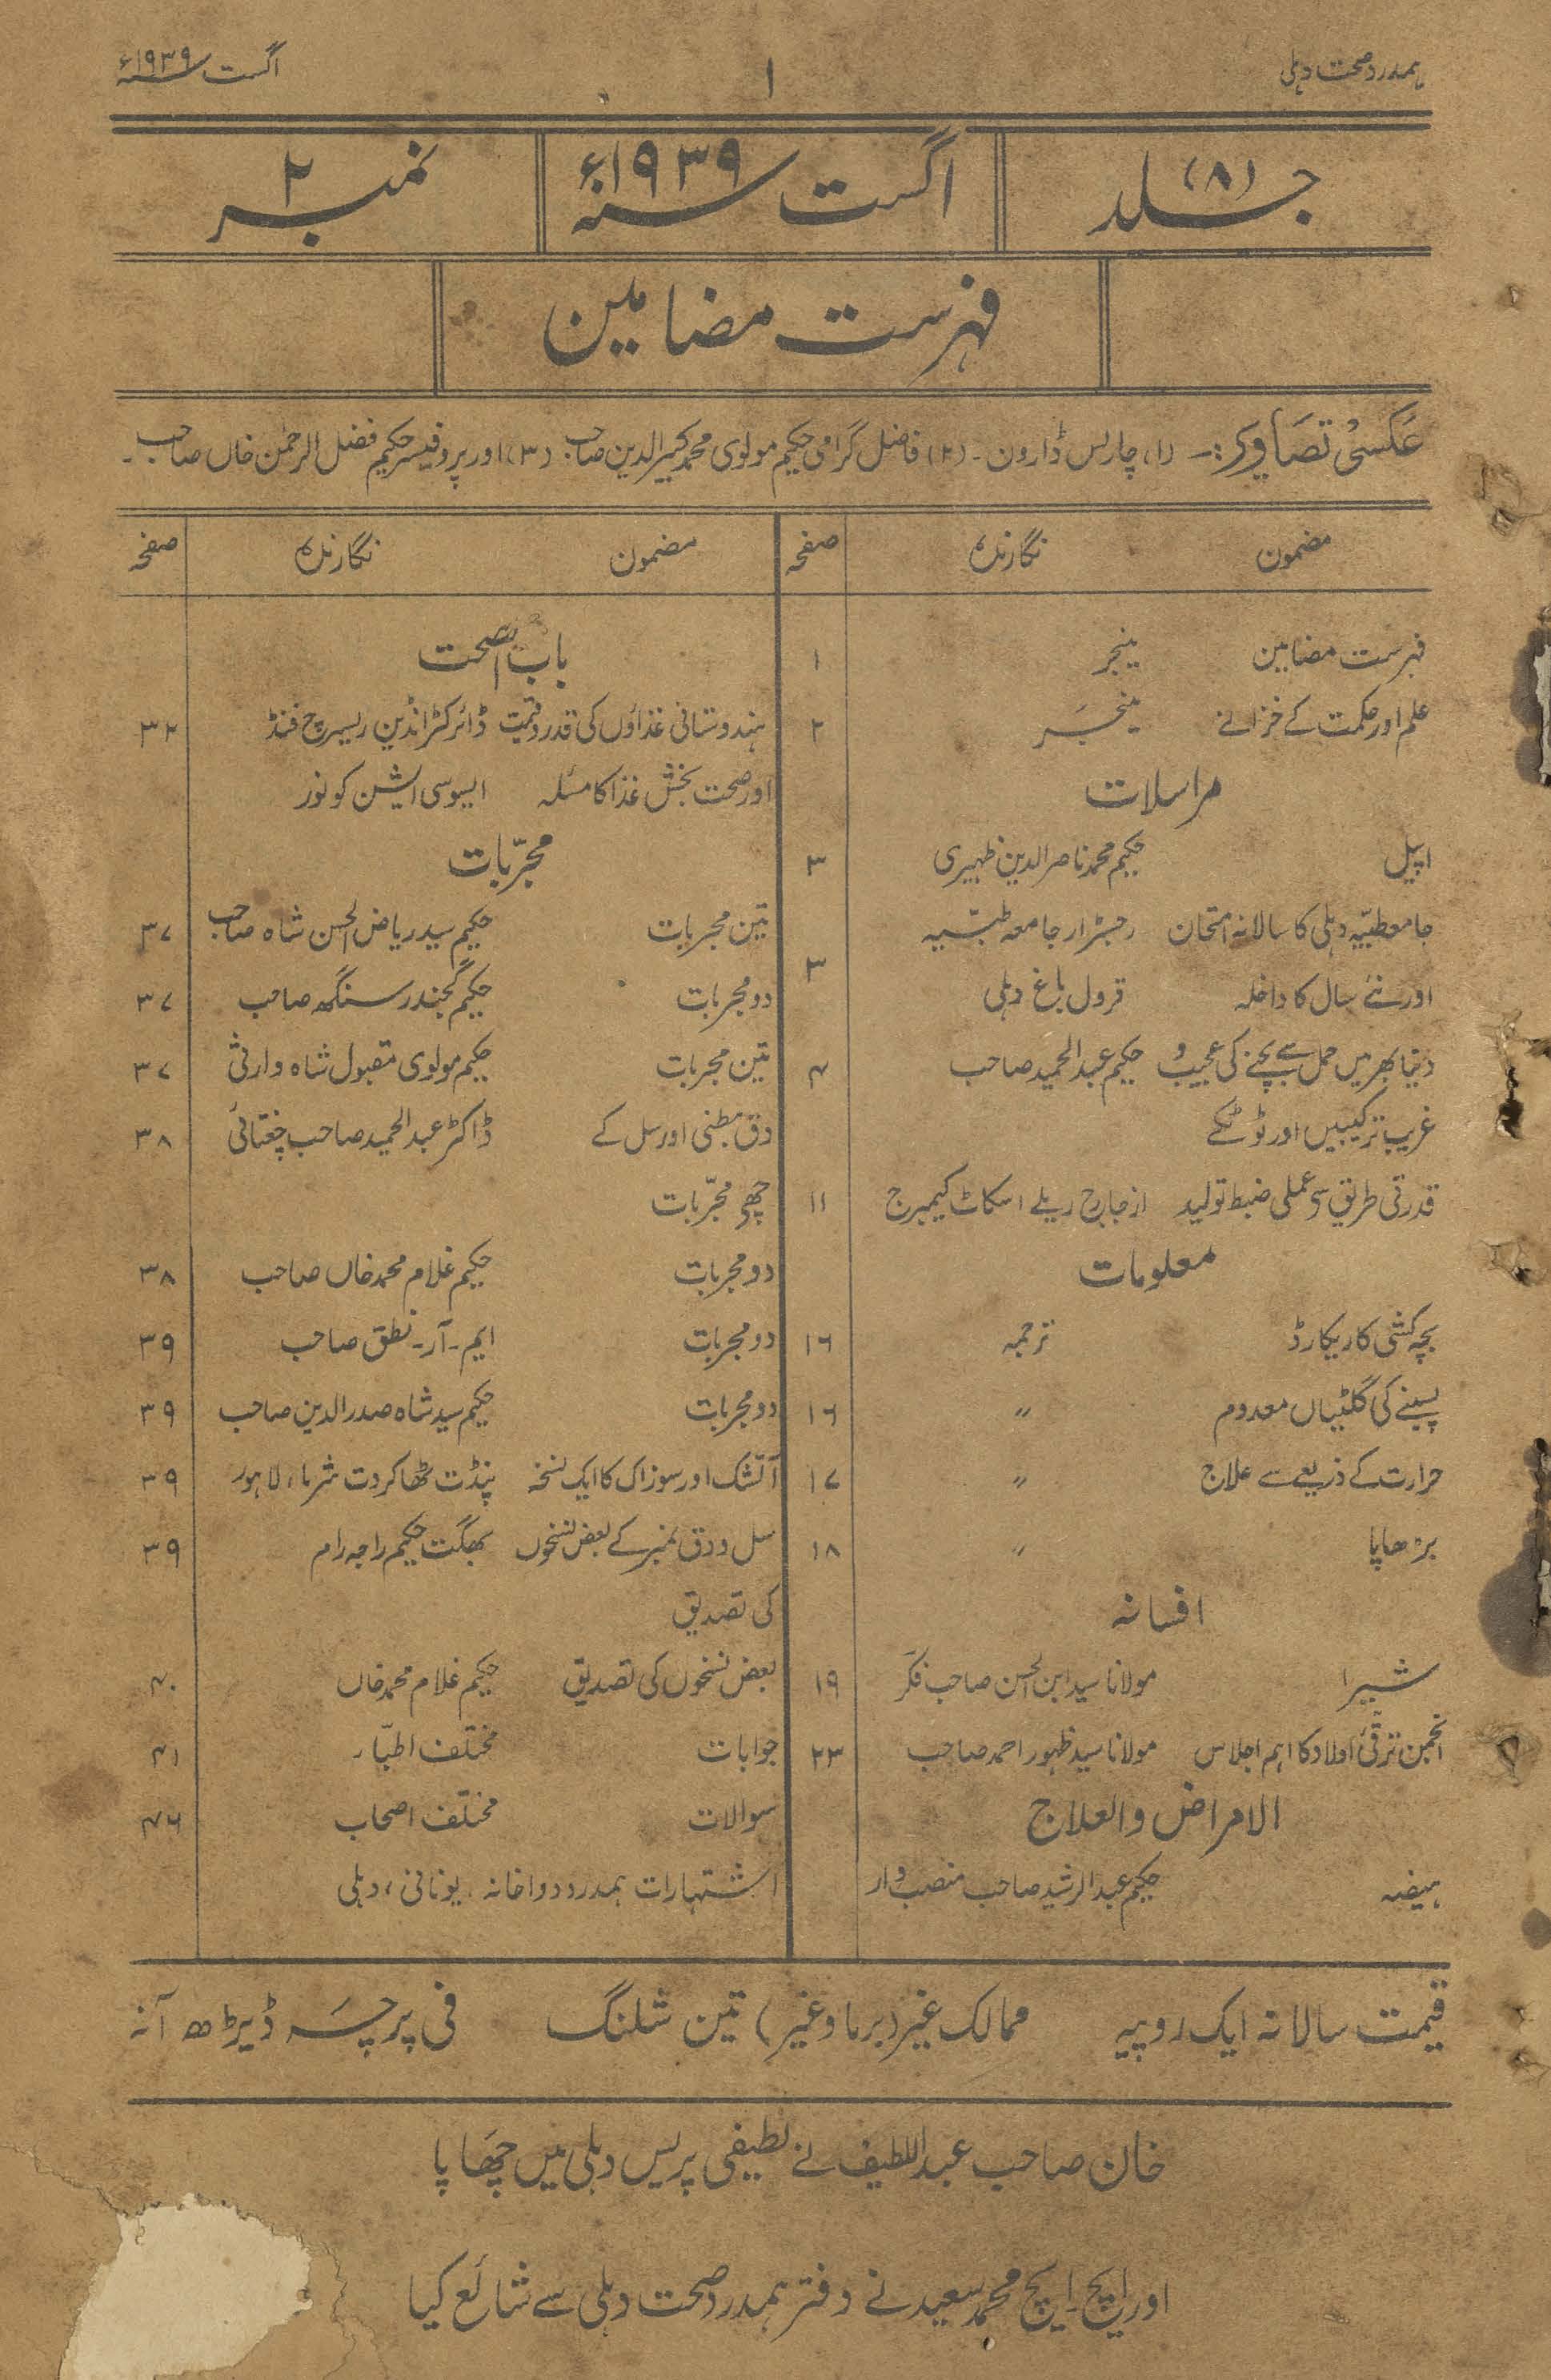 ہمدرد صحت دہلی
۱
اگست سنہ ۱۹۳۹ء
جلد (۸)
اگست سنہ ۱۹۳۹ء
نمبر ۲
فہرست مضامین
عکسی تصاویر:- (۱) چارلس ڈارون۔ (۲) فاضل گرامی حکیم مولوی محمد کبیر الدین صاحب (۳) اور پروفیسر حکیم فضل الرحمٰن خاں صاحب۔
مضمون نگارندہ صفحہ
فہرست مضامین مینجر ۱
علم اور حکمت کے خزانے مینجر ۲
مراسلات
اپیل حکیم محمد ناصر الدین ظہیری ۳
جامعہ طبیّہ دہلی کا سالانہ امتحان رجسٹرار جامعہ طبّیہ ۳
اور نئے سال کا داخلہ قرول باغ دہلی
دنیا بھر میں حمل سے بچنے کی عجیب و حکیم عبدالحمید صاحب ۴
غریب ترکیبیں اور ٹوٹکے
قدرتی طریق سے عملی ضبط تولید از جارج ریلے اسکاٹ کیمبرج ۱۱
معلومات
بچہ کشی کا ریکارڈ ترجمہ ۱۶
پسینے کی گلٹیاں معدوم 〃 ۱۶
حرارت کے ذریعے سے علاج 〃 ۱۷
بڑھاپا 〃 ۱۸
افسانہ
شبیرا مولانا سید ابن الحسن صاحب فکر ۱۹
انجمن ترقّی اولاد کا اہم اجلاس مولانا سید ظہور احمد صاحب ۲۳
الامراض والعلاج
ہیضہ حکیم عبدالرشید صاحب منصب دار
مضمون نگارندہ صفحہ
باب الصحت
ہندوستانی غذاؤں کی قدر و قیمت ڈائرکٹر انڈین ریسرچ فنڈ ۳۲
اور صحت بخش غذا کا مسئلہ ایسوسی ایشن کونور
مجرّبات
تین مجربات حکیم سید ریاض الحسن شاہ صاحب ۳۷
دو مجربات حکیم گجندر سنگھ صاحب ۳۷
تین مجربات حکیم مولوی مقبول شاہ وارثی ۳۷
دق بطنی اور سل کے ڈاکٹر عبدالحمید صاحب چغتائی ۳۸
چھ مجرّبات
دو مجربات حکیم غلام محمد خاں صاحب ۳۸
دو مجربات ایم۔ آر۔ نطق صاحب ۳۹
دو مجربات حکیم سید شاہ صدر الدین صاحب ۳۹
آتشک اور سوزاک کا ایک نسخہ پنڈت ٹھاکر دت شرما، لاہور ۳۹
سل و دق نمبر کے بعض نسخوں بھگت حکیم راجہ رام ۳۹
کی تصدیق
بعض نسخوں کی تصدیق حکیم غلام محمد خاں ۴۰
جوابات مختلف اطبّار ۴۱
سوالات مختلف اصحاب ۴۶
اشتہارات ہمدرد دواخانہ یونانی، دہلی
قیمت سالانہ ایک روپیہ ممالک غیر (برما وغیر) تین شلنگ فی پرچہ ڈیڑھ آنہ
خان صاحب عبداللطیف نے لطیفی پریس دہلی میں چھاپا
اور ایچ۔ ایچ محمد سعید نے دفتر ہمدرد صحت دہلی سے شائع کیا